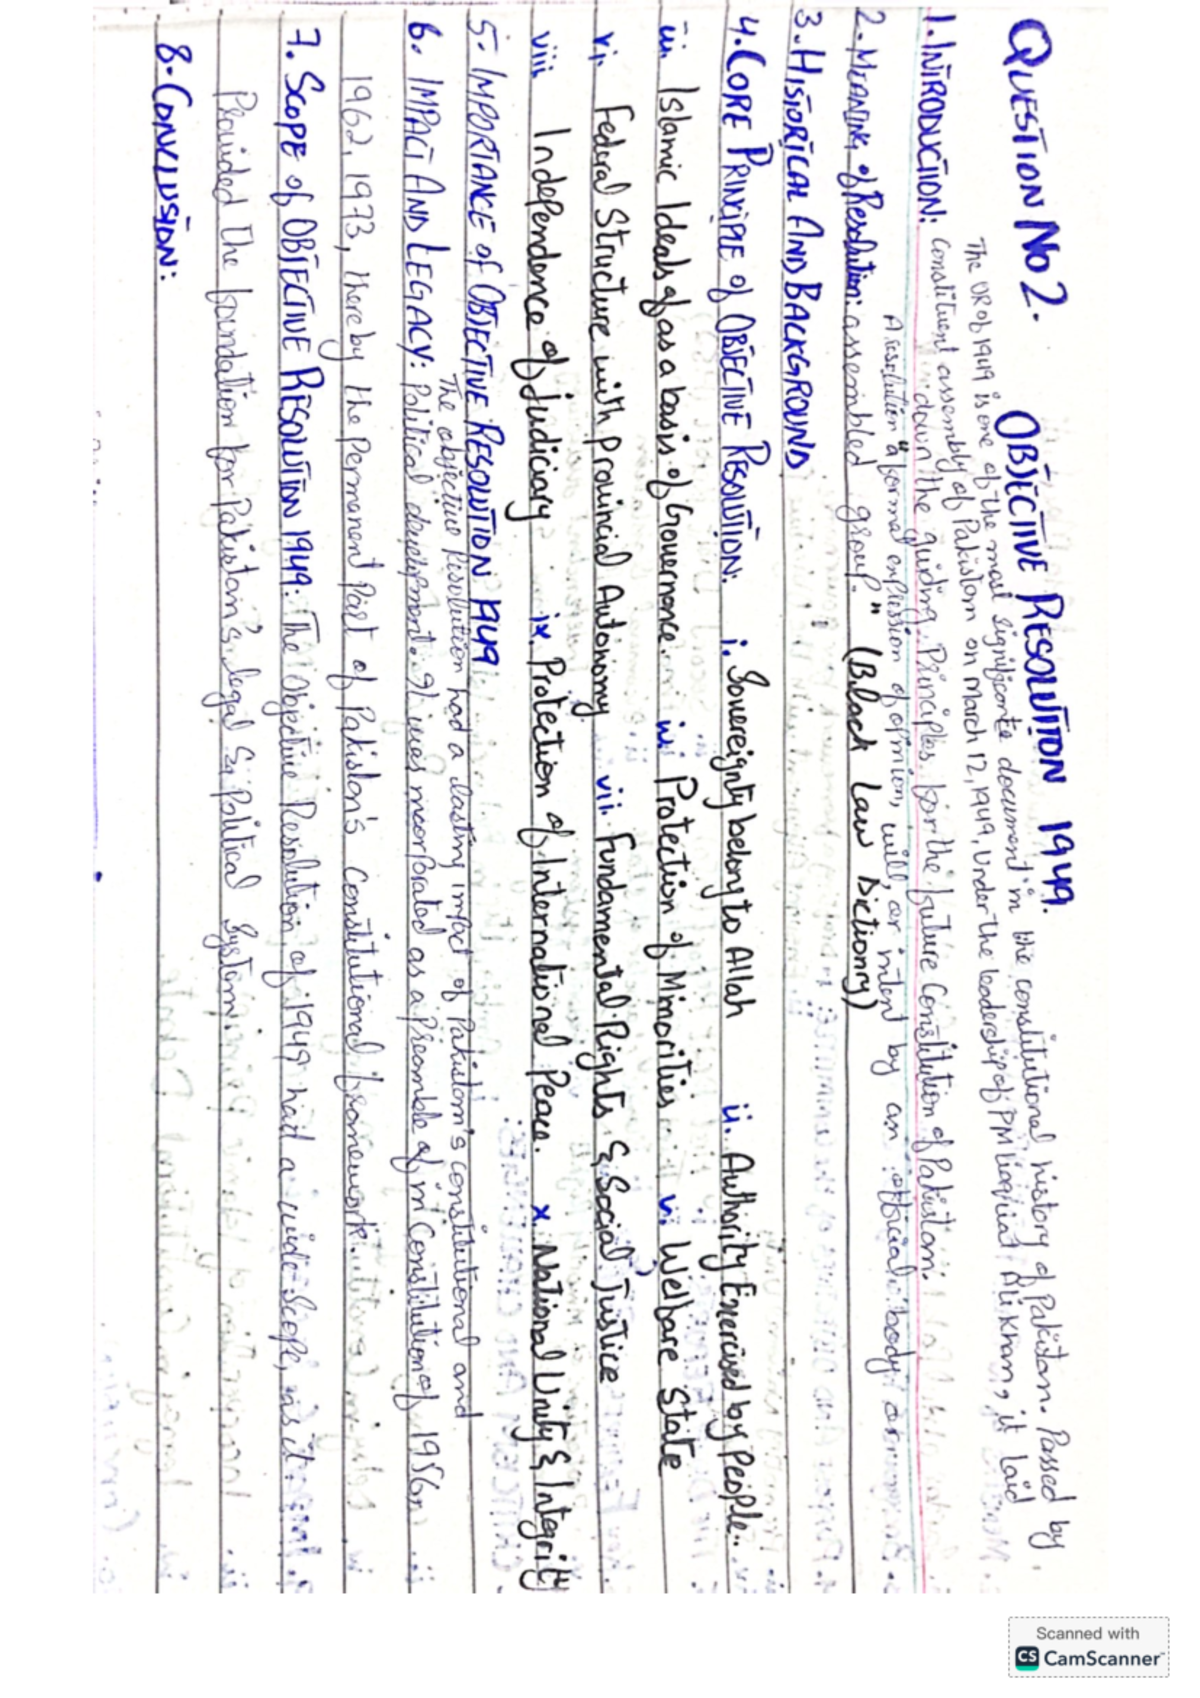 QUESTION NO 2. OBJECTIVE RESOLUTION 1949.
The OR of 1949 is one of the most significante document in the constitutional history of Pakistan. Passed by
1. INTRODUCTION: Constituent assembly of Pakistan on March 12, 1949, under the leadership of PM Liaqiat Ali Khan, it laid
down the guiding Principles for the future Constitution of Pakistan.
A resolution "a formal expression of opinion, will, or intent by an official body or
2. Meaning of Resolution: assembled group." (Black Law Dictionry)
3. HISTORICAL AND BACKGROUND
4. CORE PRINCIPLE of OBJECTIVE RESOLUTION: i. Sovereignty belong to Allah ii. Authority Exercised by People.
iii. Islamic Ideals of as a basis of Governance. iv. Protection of Minorities v. Welfare State
vi. Federal Structure with Provincial Autonomy vii. Fundamental Rights & Social Justice
viii. Independence of Judiciary ix. Protection of International Peace. x. National Unity & Integrity
5. IMPORTANCE of OBJECTIVE RESOLUTION 1949
The objective Resolution had a lasting impact of Pakistan's constitutional and
6. IMPACT AND LEGACY: Political development. It was incorporated as a Preamble of in Constitution of 1956,
1962, 1973, thereby the Permanent Part of Pakistan's Constitutional framework.
7. SCOPE of OBJECTIVE RESOLUTION 1949: The Objective Resolution of 1949 had a wide Scope, as it
Provided the foundation for Pakistan's legal & Political System
8. CONCLUSION:
Scanned with
CS CamScanner